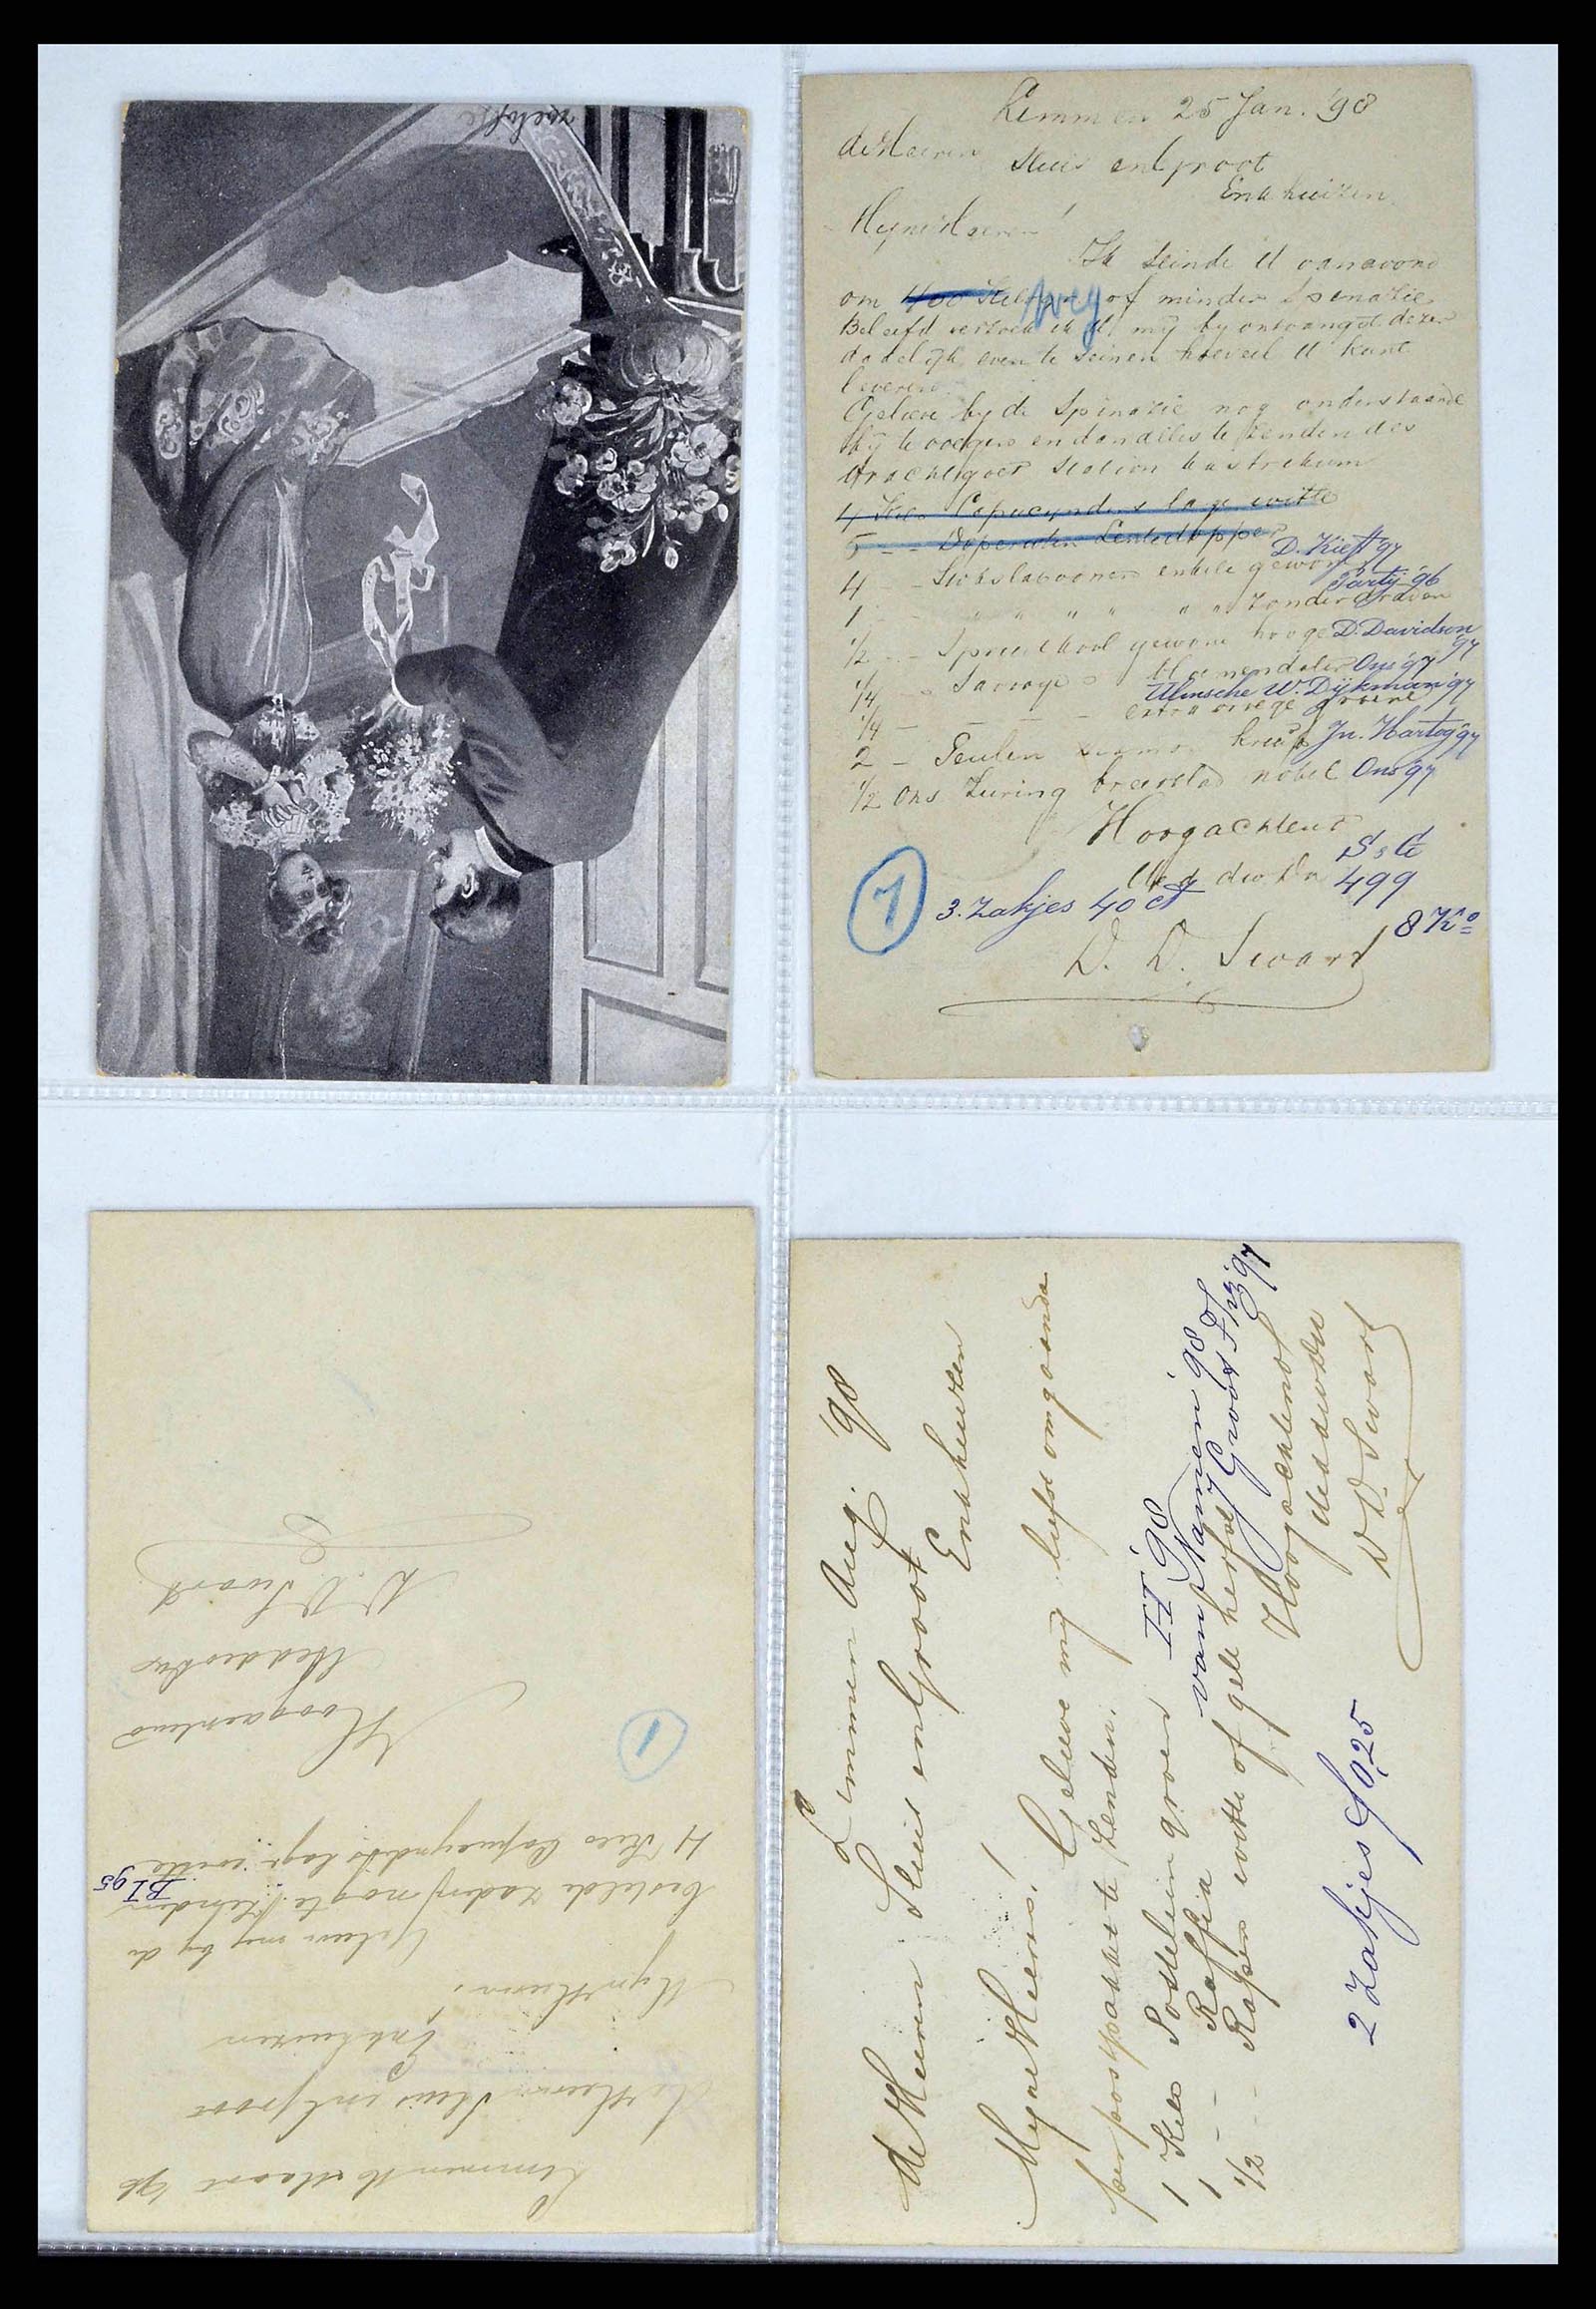 Limmen 25 Jan. '98
de Heeren Sluis en Groot
Enkhuizen
Mijne Heeren!
Ik seinde U vanavond
om 400 Kilo of minder Spinazie
weg
Beleefd verzoek ik U mij by ontvangst dezer
dadelijk even te seinen hoeveel U kunt
leveren.
Gelieve by de Spinazie nog onderstaande
bij te voegen en dan alles te zenden als
Vrachtgoed Station Kastrikum
4 Kilo Capucynders lage witte
5 - - Doperwten
4 - - Stokslaboonen enkele gewone D. Kieft '97
1 - - " " " " " " zonder draden Partij '96
1/2 - - Spruitkool gewone hooge D. Davidson '97
1/4 - - Savooye - Bloemendaler Ons '97
Ulmsche W. Dijkman '97
1/4 - - - - - extra groene
2 - Peulen Jn. Hartog '97
1/2 Ons Zuring breedblad nobel Ons '97
Hoogachtend
Ued dw Dr
S & G
499
3. Zakjes 40 ct
8 Ko
7
D. D. Swart
Limmen 16 Maart '96
de Heeren Sluis en Groot
Enkhuizen
Mijne Heeren!
Gelieve mij by de
bestelde zaden nog te zenden
4 Kilo Capucynders lage witte
B I 95
1
Hoogachtend
Ued dw Dr
D. D. Swart
Limmen Aug. '98
de Heeren Sluis en Groot
Enkhuizen
Mijne Heeren!
Gelieve mij liefst omgaande
per postpakket te zenden.
1 Kilo Postelein groen II '98
1 - - Raffia van Namen '98
1/2 - - Rapen witte of gele herfst Groot '97
Hoogachtend
Ued dw Dr
D. D. Swart
2 Zakjes f 0,25